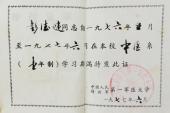 同志自一九七六年 月
至一九七七年六月在本校 系
（ 年制）学习期满特发此证
中国人民解放军 第一军医大学
一九七七年六月